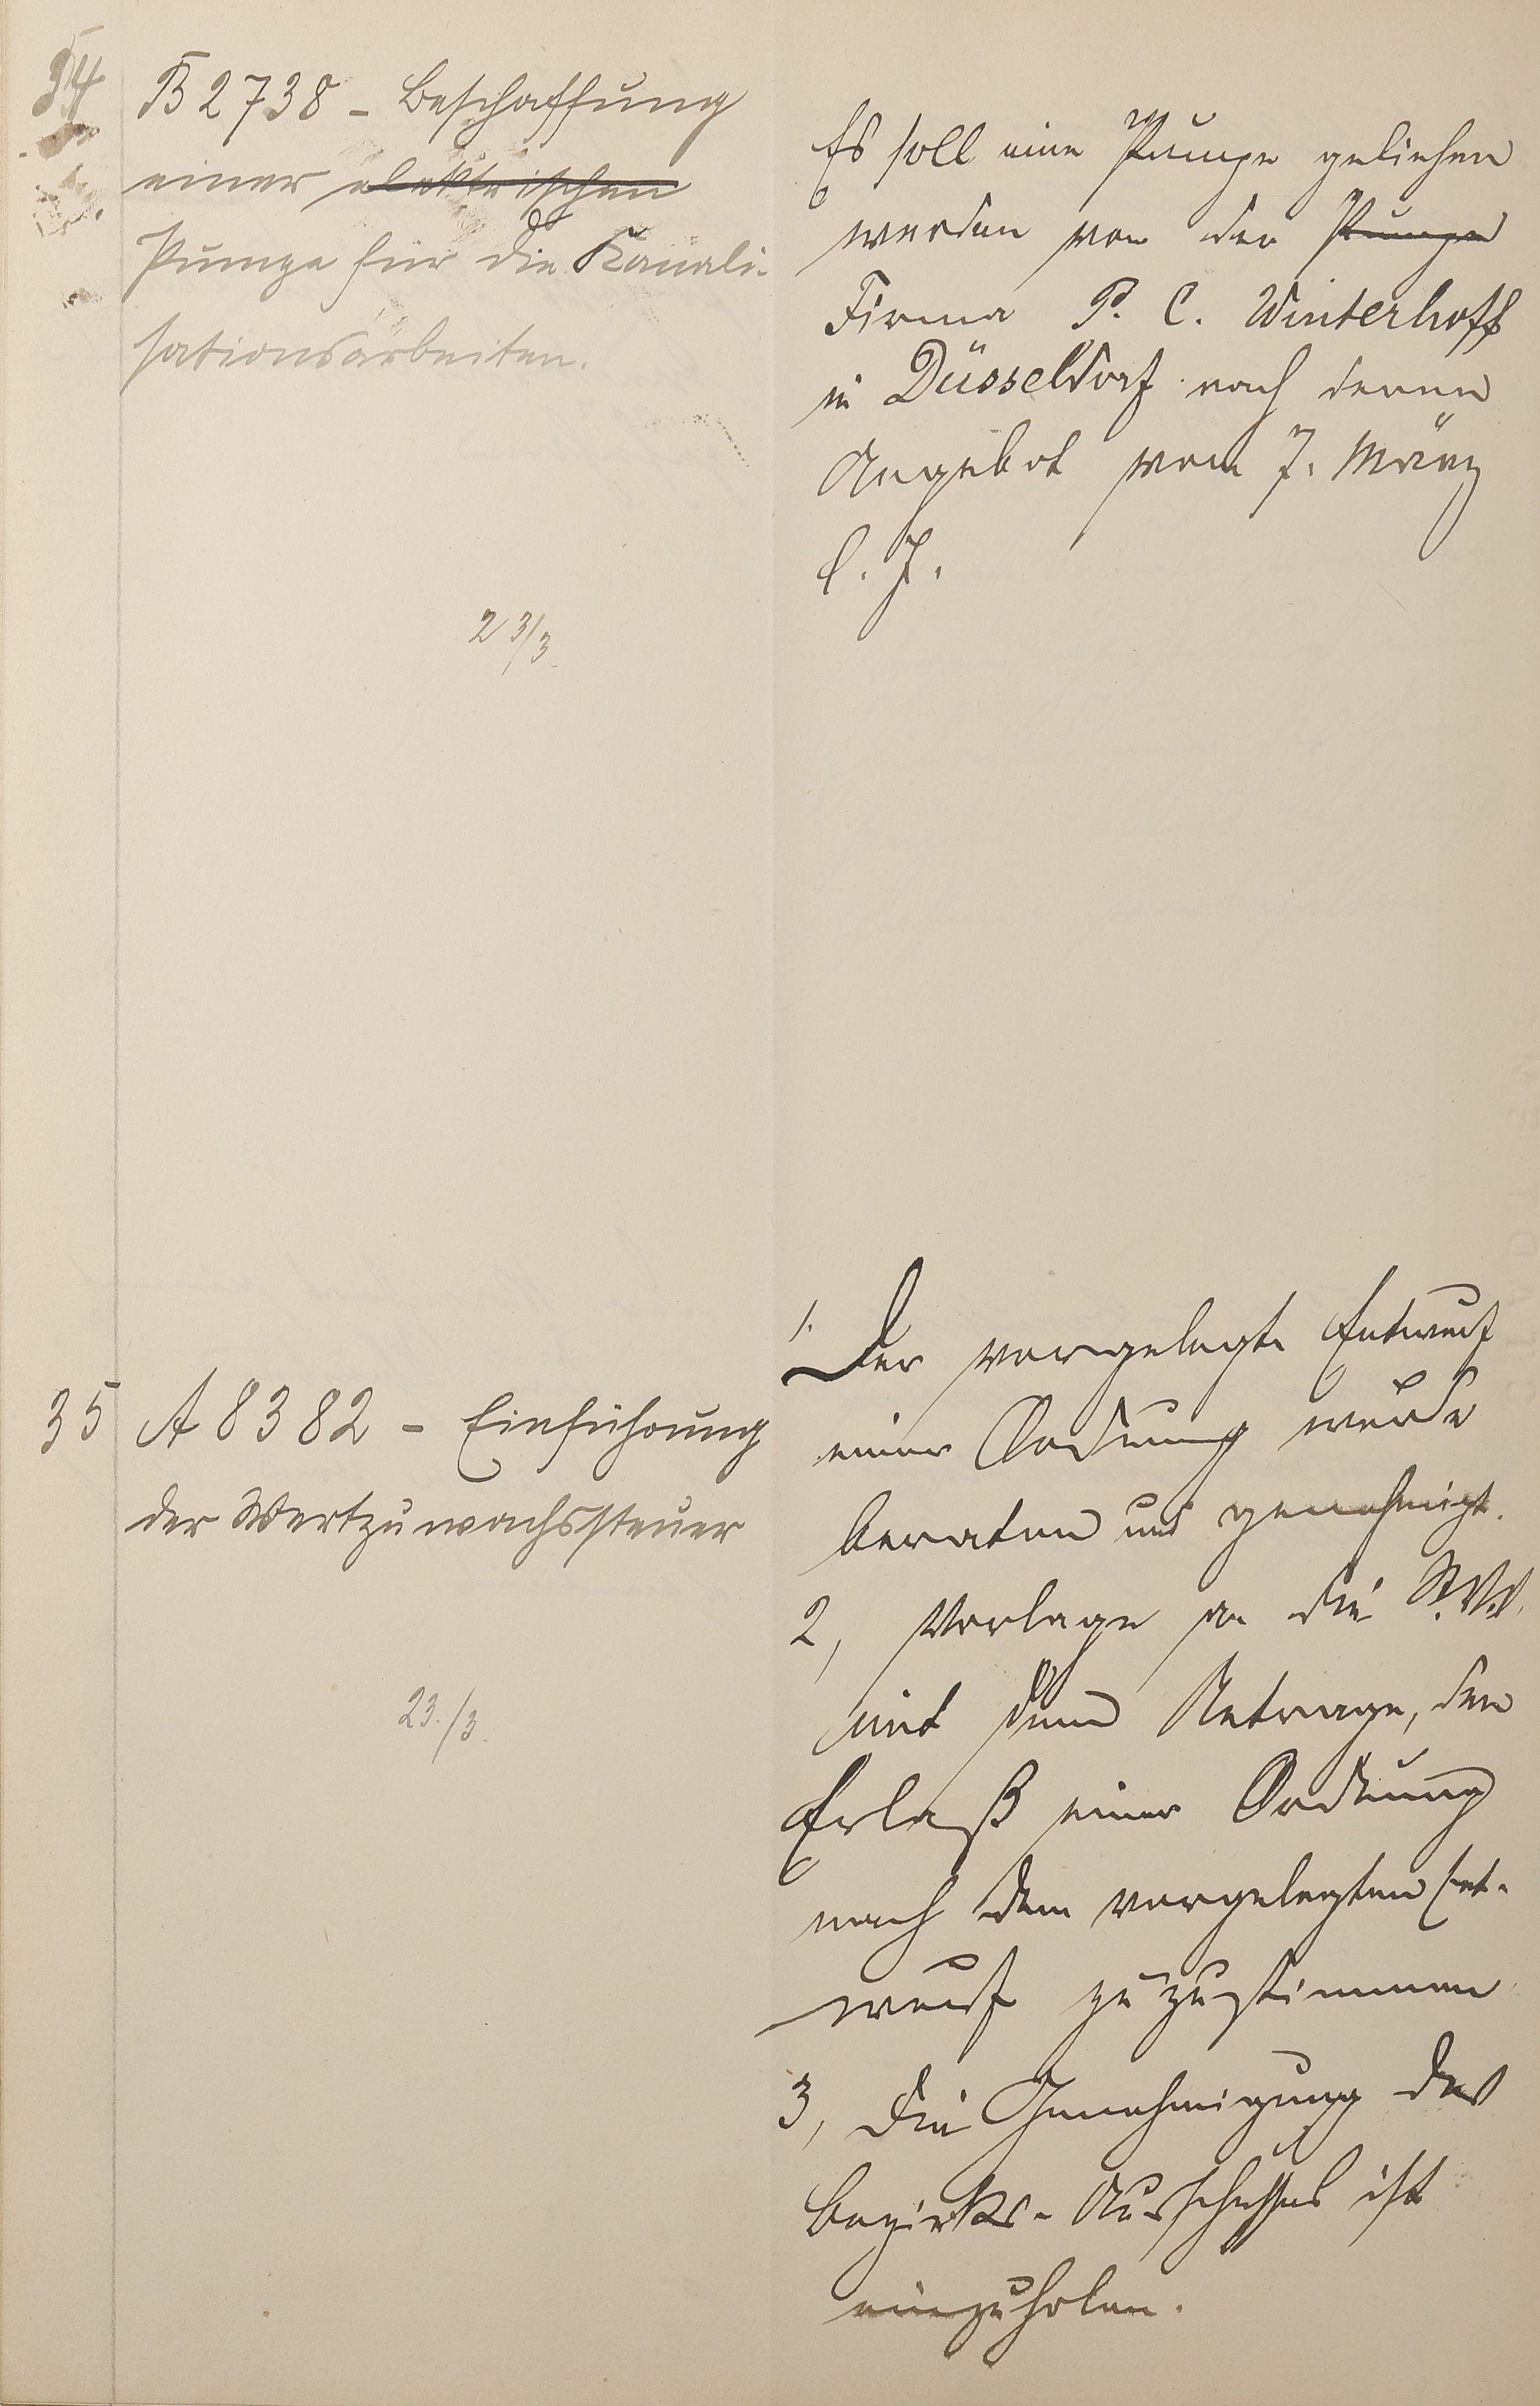 34 B 2738 - Beschaffung
einer elektrischen
Pumpe für die Kanali-
sationsarbeiten.
23/3.
Es soll eine Pumpe geliehen
werden von der Pumpe
Firma P. C. Winterhoff
in Düsseldorf nach deren
Angebot vom 7. März
l. J.
35 A 8382 - Einführung
der Wertzuwachssteuer
23./3.
1. Der vorgelegte Entwurf
einer Ordnung wurde
beraten und genehmigt.
2, Vorlage an die St.V.V.
mit dem Antrage, den
Erlaß einer Ordnung
nach dem vorgelegten Ent-
wurf zuzustimmen
3, Die Genehmigung des
Bezirks-Ausschusses ist
einzuholen.